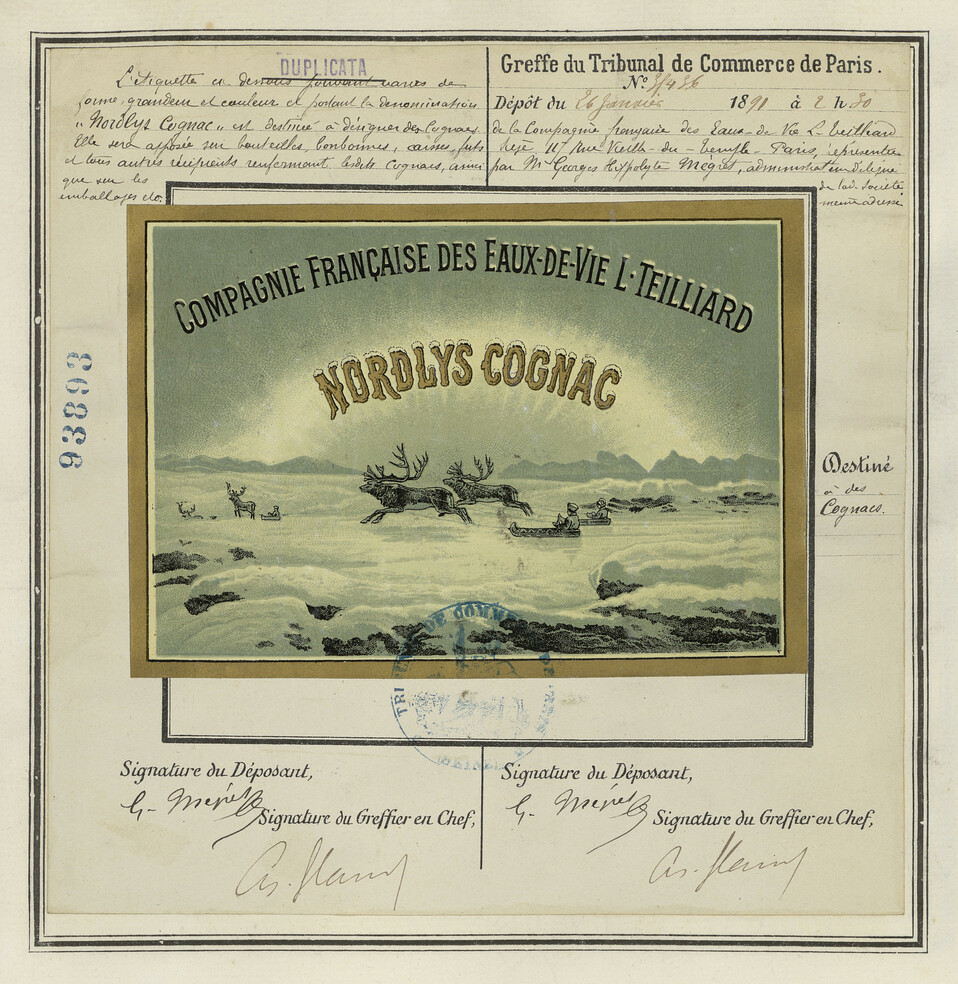 DUPLICATA
L'étiquette ci dessous pouvant varier de
forme, grandeur et couleur et portant la dénomination
"Nordlys Cognac" est destinée à désigner des Cognacs.
Elle sera apposée sur bouteilles, bonbonnes, caisses, fûts
et tous autres récipients renfermant lesdits Cognacs, ainsi
que sur les
emballages etc.
Greffe du Tribunal de Commerce de Paris.
No
Dépôt du 26 Janvier 1891 à 2 h 30
de la Compagnie française des Eaux-de-Vie L. Teilliard
117 Rue Vieille-du-Temple-Paris, représentée
par Mr Georges Hippolyte Mégret, administrateur délégué
de lad. Société
même adresse
COMPAGNIE FRANÇAISE DES EAUX-DE-VIE L. TEILLIARD
NORDLYS COGNAC
93893
Destiné
à des
Cognacs.
TRIBUNAL DE COMMERCE
Signature du Déposant,
G. Mégret
Signature du Greffier en Chef,
Signature du Déposant,
G. Mégret
Signature du Greffier en Chef,